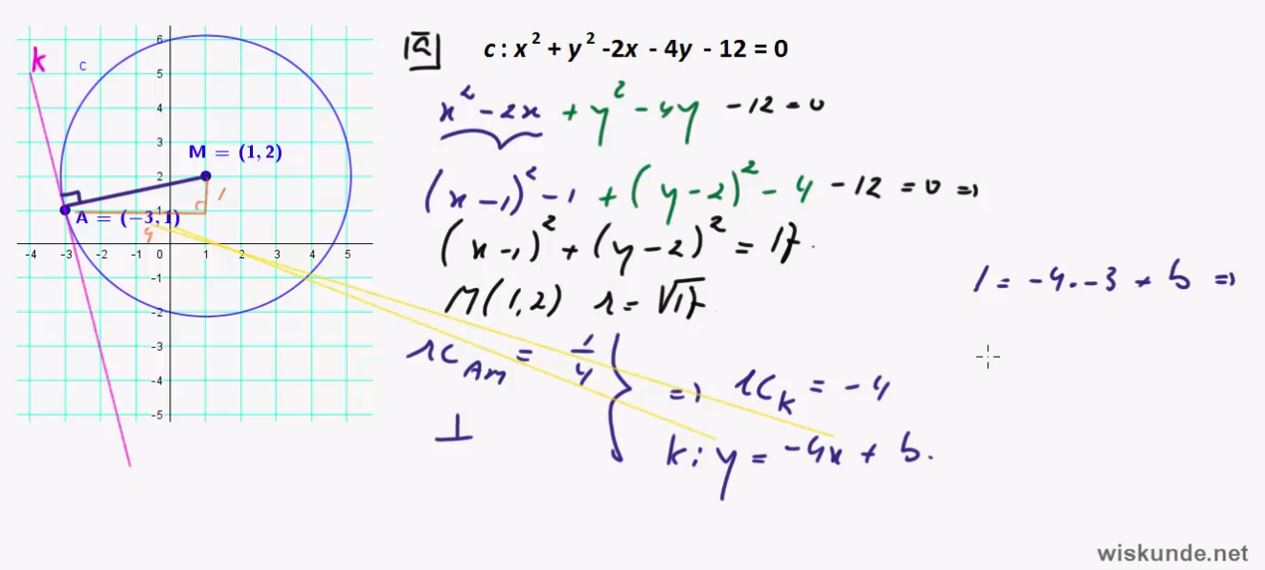 k
c
6
5
4
3
2
1
-4 -3 -2 -1 0 1 2 3 4 5
-1
-2
-3
-4
-5
M = (1, 2)
1
A = (−3, 1)
4
12
c : x² + y² -2x - 4y - 12 = 0
x² − 2x + y² − 4y − 12 = 0
(x − 1)² − 1 + (y − 2)² − 4 − 12 = 0 ⇒
(x − 1)² + (y − 2)² = 17.
M(1,2) r = √17
rc_AM = 1/4 } ⇒ rc_k = −4
⊥
k: y = −4x + b.
1 = −4 · −3 + b ⇒
wiskunde.net